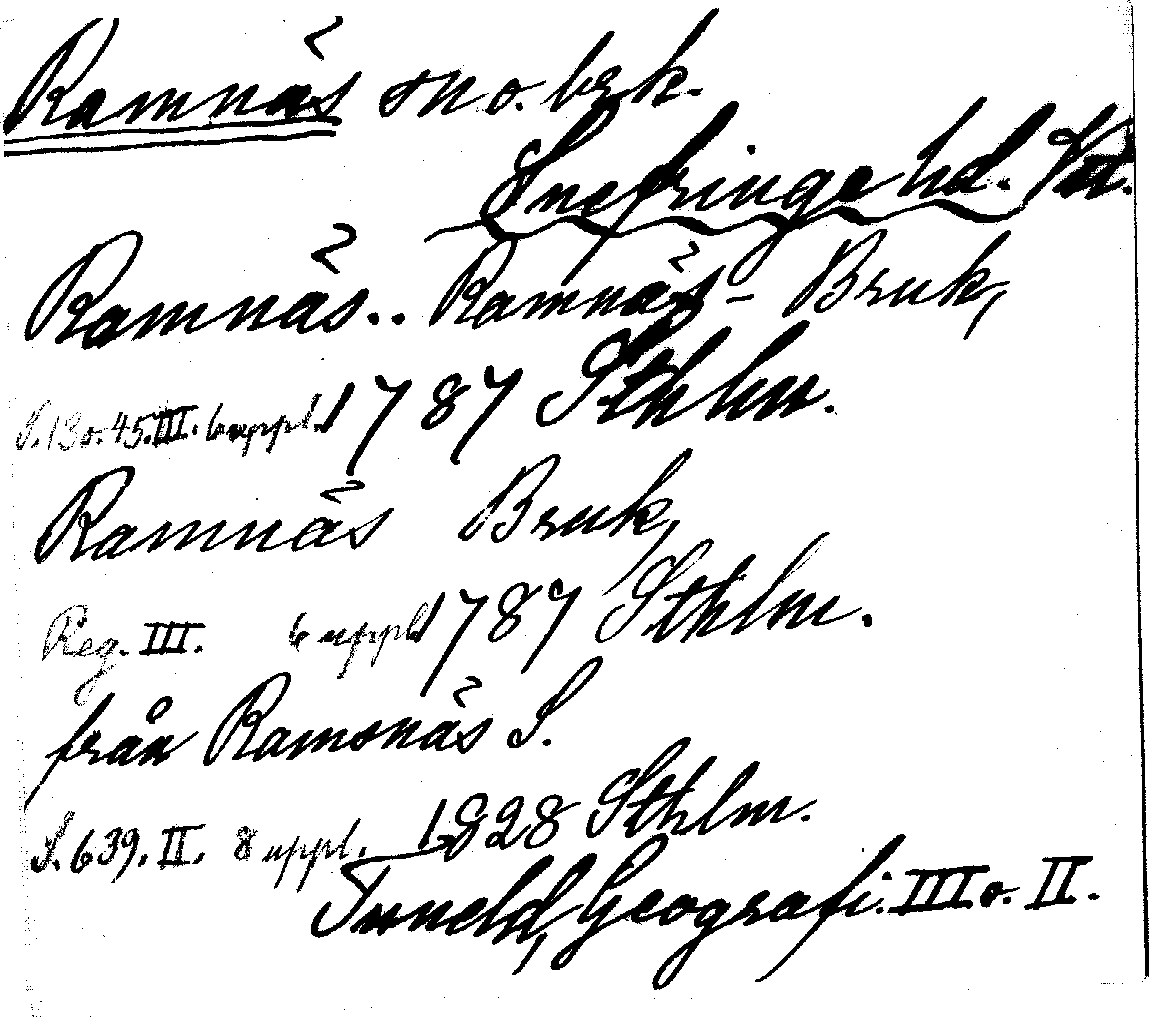 Ramnäs sn o. brk.
Snefringe hd. Vstl.
Ramnäs.. Ramnäs- Bruk,
S. 13 o. 45. III. 6 uppl. 1787 Sthlm.
Ramnäs Bruk,
Reg. III. 6 uppl 1787 Sthlm.
från Ramsnäs S.
S. 639. II. 8 uppl. 1828 Sthlm.
Tuneld, Geografi. III o. II.